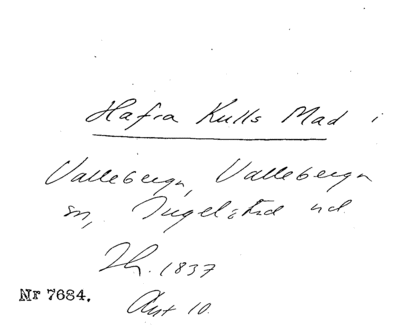 Hafra Kulls Mad i
Valleberga, Valleberga
sn, Ingelstad hd.
Th. 1837
Nr 7684.
Akt 10.